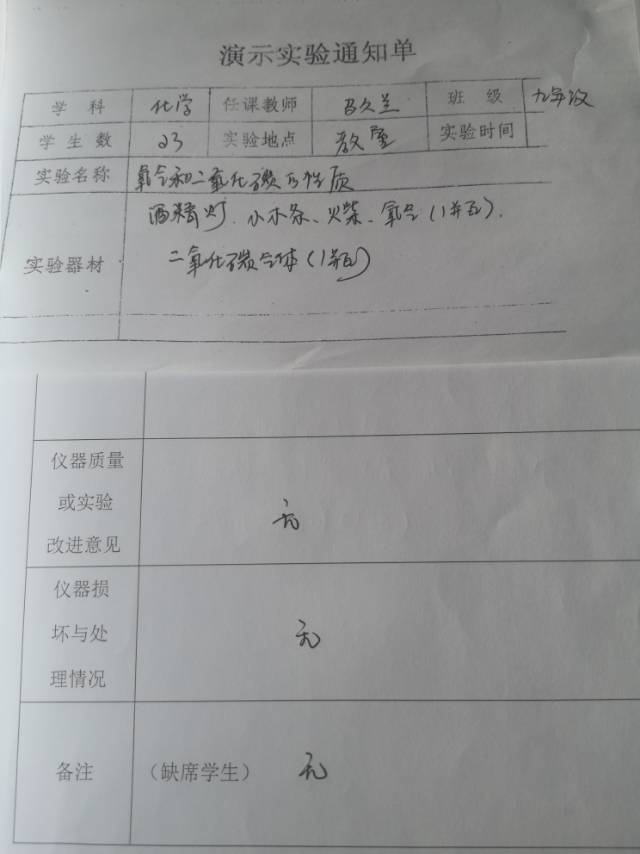 演示实验通知单
学科 化学 任课教师 吕久兰 班级 九年级
学生数 23 实验地点 教室 实验时间
实验名称 氧气和二氧化碳的性质
酒精灯、小木条、火柴、氧气(1并瓦)、
实验器材 二氧化碳气体(1并瓦)
仪器质量
或实验 无
改进意见
仪器损
坏与处 无
理情况
备注 (缺席学生) 无